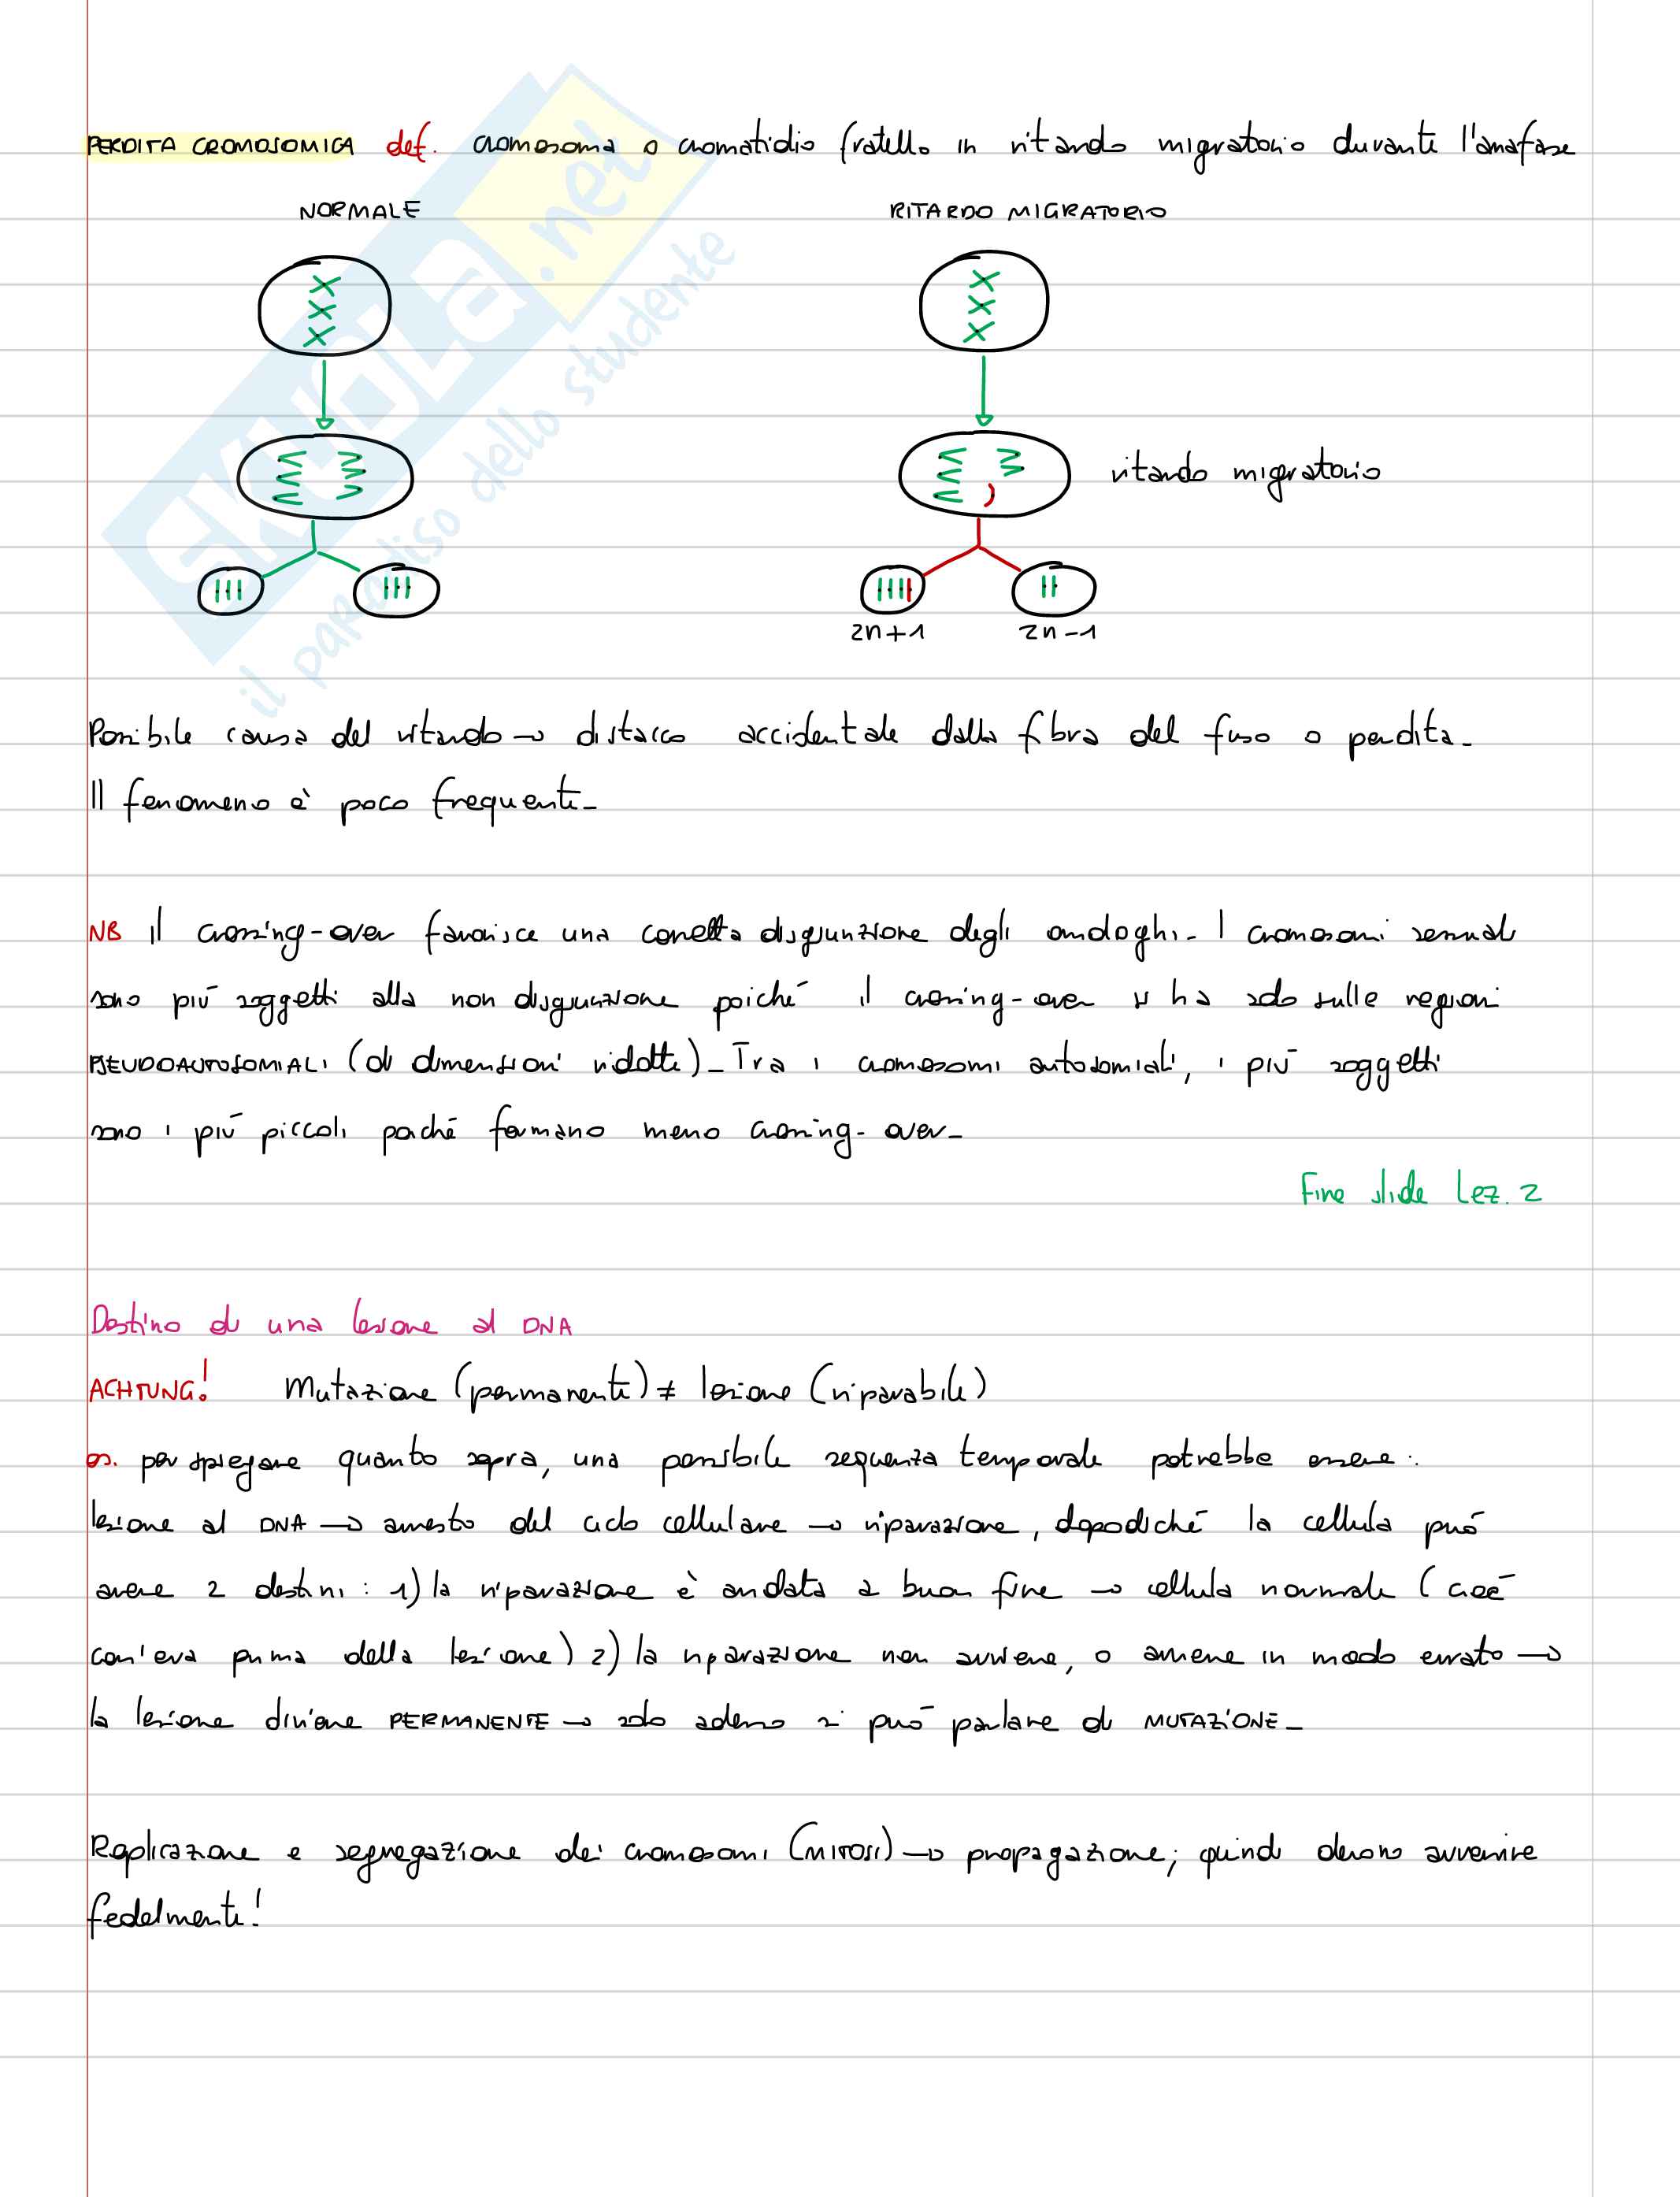 PERDITA CROMOSOMICA def. cromosoma o cromatidio fratello in ritardo migratorio durante l'anafase
NORMALE RITARDO MIGRATORIO
ritardo migratorio
2n+1 2n-1
Possibile causa del ritardo → distacco accidentale dalla fibra del fuso o perdita_
Il fenomeno è poco frequente_
NB Il crossing-over favorisce una corretta disgiunzione degli omologhi_ I cromosomi sessuali
sono più soggetti alla non disgiunzione poiché il crossing-over si ha solo sulle regioni
PSEUDOAUTOSOMIALI (di dimensioni ridotte)_ Tra i cromosomi autosomiali, i più soggetti
sono i più piccoli poiché formano meno crossing-over_
Fine slide Lez. 2
Destino di una lesione al DNA
ACHTUNG! Mutazione (permanente) ≠ lesione (riparabile)
es. per spiegare quanto sopra, una possibile sequenza temporale potrebbe essere:
lesione al DNA → arresto del ciclo cellulare → riparazione, dopodiché la cellula può
avere 2 destini: 1) la riparazione è andata a buon fine → cellula normale (cioè
com'era prima della lesione) 2) la riparazione non avviene, o avviene in modo errato →
la lesione diviene PERMANENTE → solo adesso si può parlare di MUTAZIONE_
Replicazione e segregazione dei cromosomi (MITOSI) → propagazione; quindi devono avvenire
fedelmente!
SKUOLA.net
il paradiso dello studente